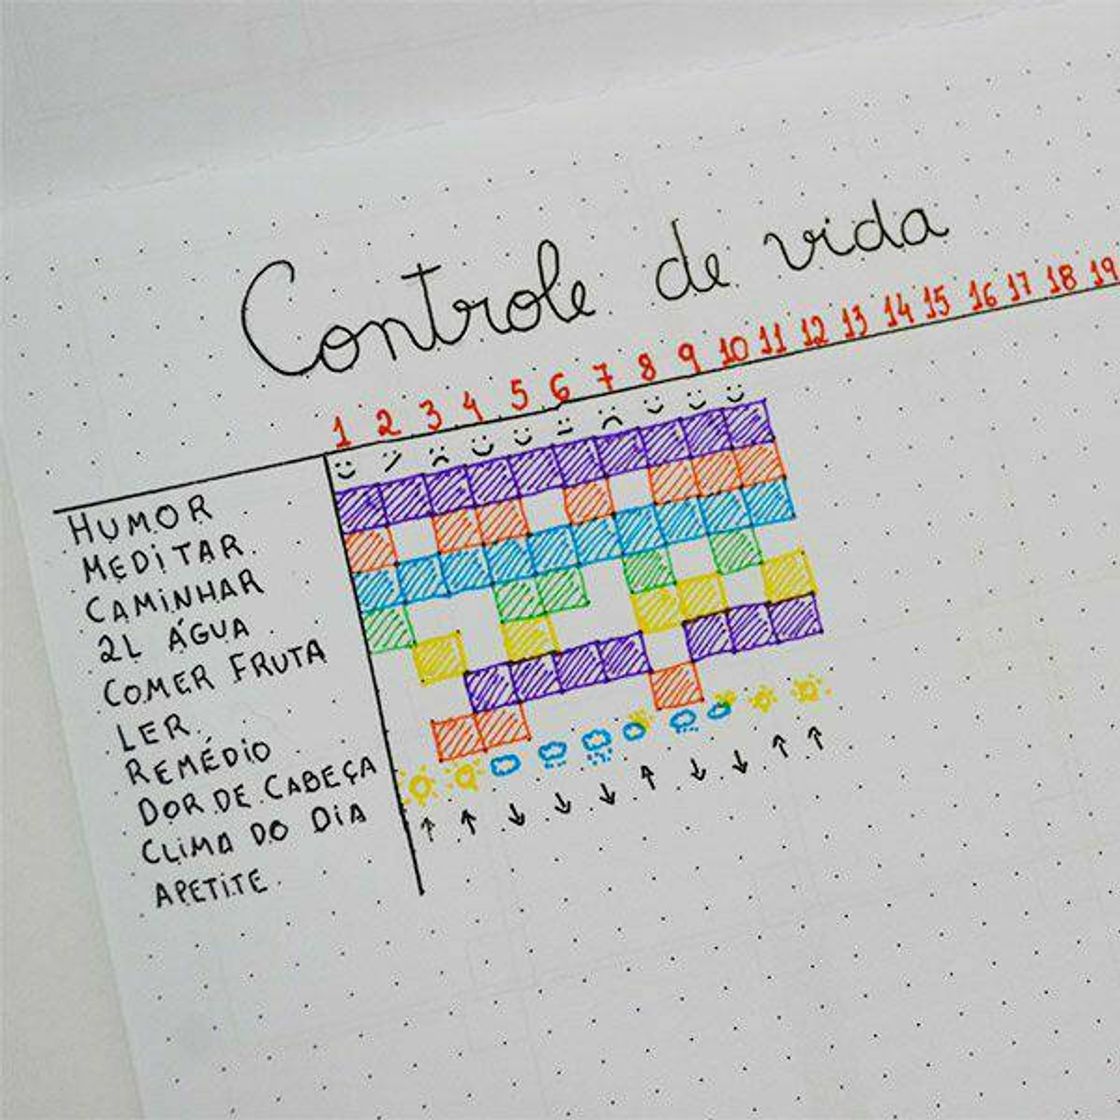 Controle de vida
1 2 3 4 5 6 7 8 9 10 11 12 13 14 15 16 17 18 19
HUMOR
MEDITAR
CAMINHAR
2L ÁGUA
COMER FRUTA
LER
REMÉDIO
DOR DE CABEÇA
CLIMA DO DIA
APETITE